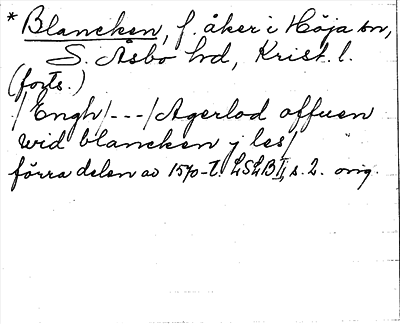 * Blancken, f. åker i Höja sn,
S. Åsbo hd, Krist. l.
(forts.)
/Engh/---/Agerlod offuen
wid blancken j les/
förra delen av 1570-t. LSLB II, s. 2. orig.